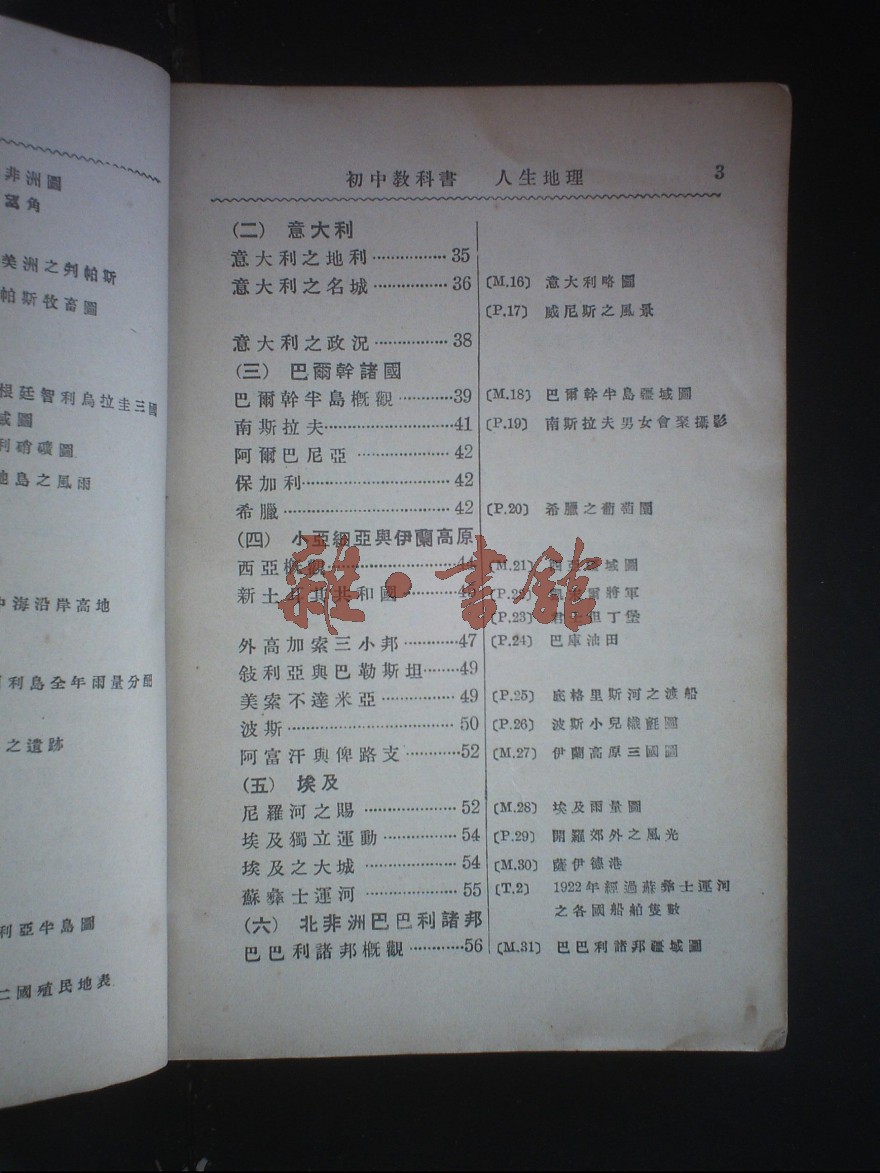 非洲圖
窩角
美洲之判帕斯
帕斯牧畜圖
根廷智利烏拉圭三國
域圖
利硝礦圖
地島之風雨
中海沿岸高地
利島全年雨量分配
之遺跡
利亞半島圖
二國殖民地表
初中教科書 人生地理 3
(二) 意大利
意大利之地利………………35
意大利之名城………………36 〔M.16〕 意大利略圖
〔P.17〕 威尼斯之風景
意大利之政況………………38
(三) 巴爾幹諸國
巴爾幹半島概觀…………39 〔M.18〕 巴爾幹半島疆域圖
南斯拉夫……………………41 〔P.19〕 南斯拉夫男女會聚攝影
阿爾巴尼亞…………………42
保加利………………………42
希臘…………………………42 〔P.20〕 希臘之葡萄園
(四) 小亞細亞與伊蘭高原
西亞概觀……………………44 〔M.21〕 西亞疆域圖
新土耳其共和國…………45 〔P.22〕 將軍
〔P.23〕 君士但丁堡
外高加索三小邦…………47 〔P.24〕 巴庫油田
敍利亞與巴勒斯坦………49
美索不達米亞………………49 〔P.25〕 底格里斯河之渡船
波斯…………………………50 〔P.26〕 波斯小兒織氈圖
阿富汗與俾路支…………52 〔M.27〕 伊蘭高原三國圖
(五) 埃及
尼羅河之賜…………………52 〔M.28〕 埃及雨量圖
埃及獨立運動………………54 〔P.29〕 開羅郊外之風光
埃及之大城…………………54 〔M.30〕 薩伊德港
蘇彝士運河…………………55 〔T.2〕 1922年經過蘇彝士運河
之各國船舶隻數
(六) 北非洲巴巴利諸邦
巴巴利諸邦概觀…………56 〔M.31〕 巴巴利諸邦疆域圖
雜·書館